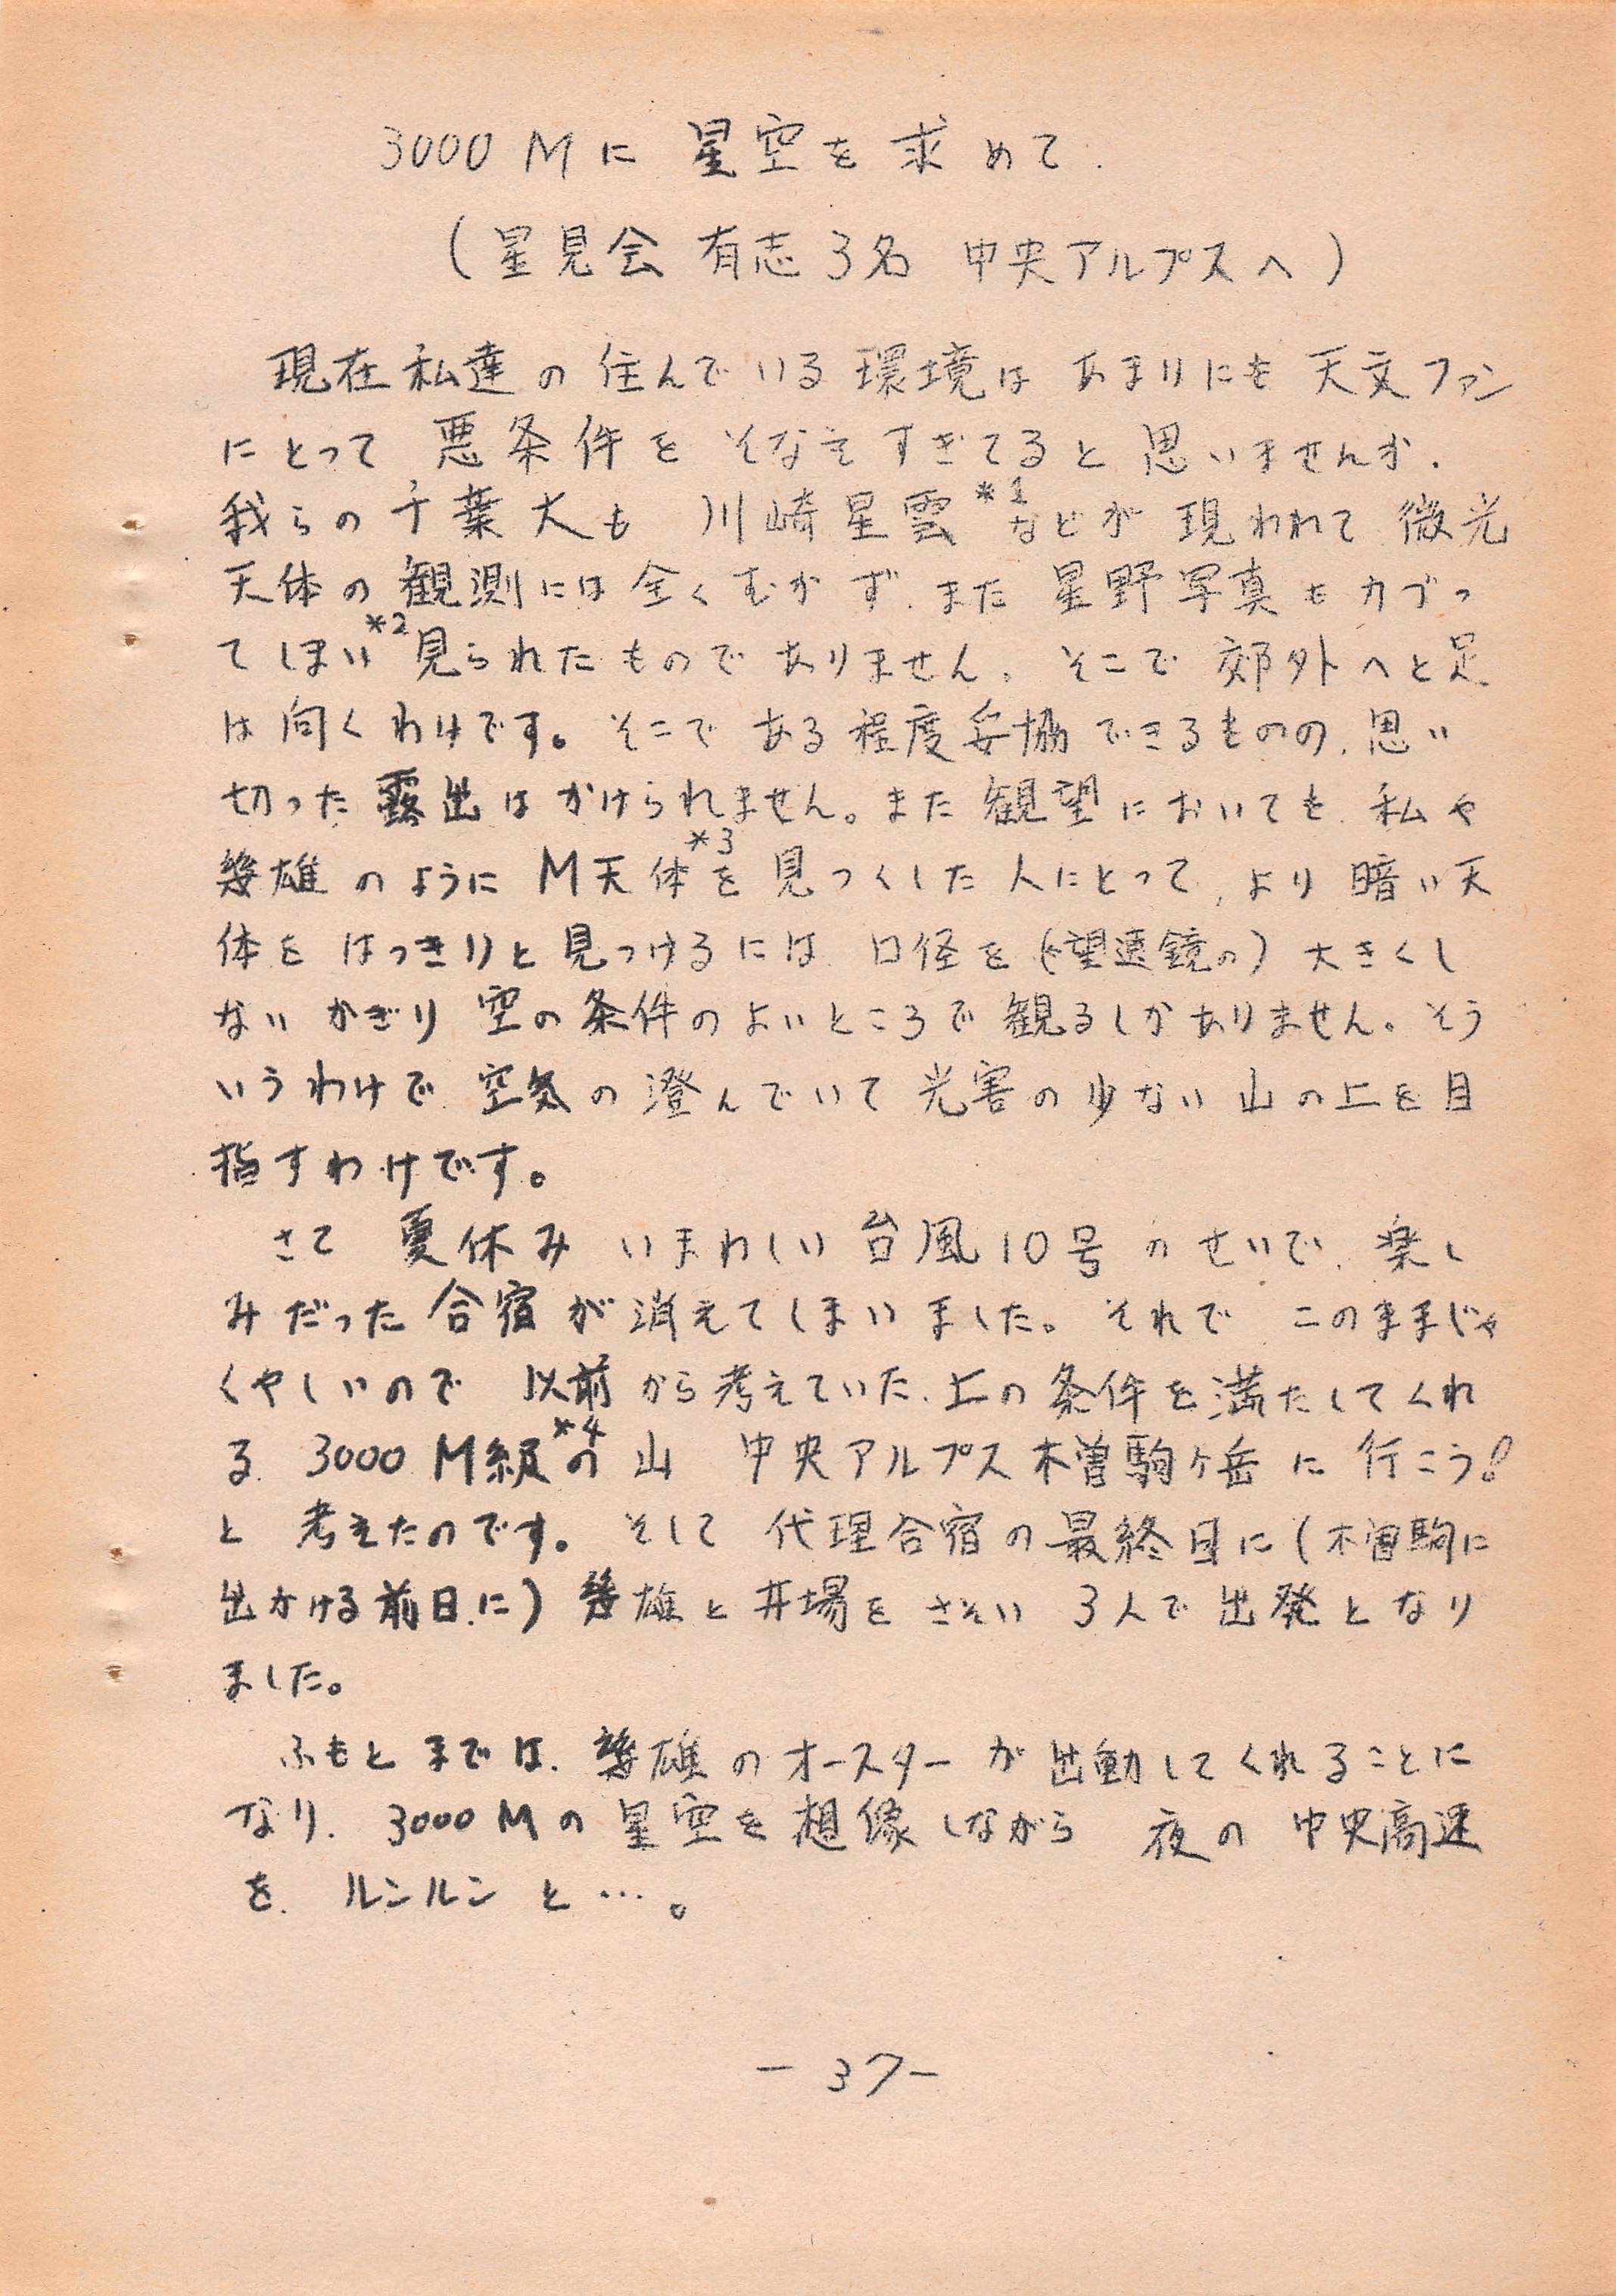 3000Mに星空を求めて.
(星見会 有志3名 中央アルプスへ)
現在私達の住んでいる環境は あまりにも 天文ファン
にとって 悪条件を そなえ すぎてると 思いませんか.
我らの千葉大も 川崎星雲*1などが 現われて 微光
天体の観測には全くむかず.また 星野写真もカブっ
てしまい*2見られたものでありません。そこで 郊外へと足
は向くわけです。そこで ある程度妥協できるものの.思い
切った露出はかけられません。また観望においても.私や
幾雄のようにM天体*3を見つくした人にとって,より暗い天
体をはっきりと見つけるには 口径を(望遠鏡の)大きくし
ないかぎり 空の条件のよいところで観るしかありません。そう
いうわけで.空気の澄んでいて光害の少ない山の上を目
指すわけです。
さて 夏休み いまわしい台風10号のせいで.楽し
みだった合宿が消えてしまいました。それで このままじゃ
くやしいので 以前から考えていた.上の条件を満たしてくれ
る.3000M級*4の山 中央アルプス木曽駒ヶ岳に行こう!
と 考えたのです。そして 代理合宿の最終日に(木曽駒に
出かける前日.に)幾雄と井場をさそい 3人で出発となり
ました。
ふもとまでは.幾雄のオースターが出動してくれることに
なり.3000Mの星空を想像しながら 夜の中央高速
を.ルンルンと…。
-37-